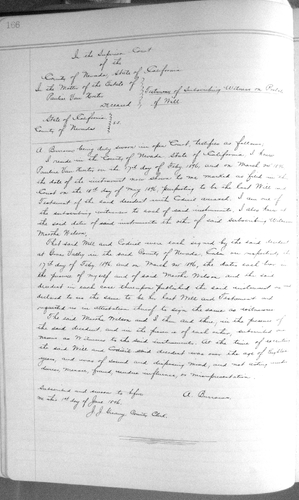 166
In the Superior Court
of the
County of Nevada, State of California
In the Matter of the Estate of
Deceased
Testimony of Subscribing Witness on Probate
of Will
State of California
County of Nevada
ss.
A. Burrows being duly sworn in open Court, testifies as follows,
I reside in the County of Nevada State of California. I knew
on the 17th day of Feby 1896, and on March
the date of the instrument now shown to me marked as filed in this
Court on the day of May 1896, purporting to be the last Will and
Testament of the said decedent with Codicil annexed. I am one of
the subscribing witnesses to each of said instruments. I also knew at
the said dates of said instruments the other of said Subscribing Witnesses
Martha Nelson.
That said Will and Codicil were each signed by the said decedent
at Grass Valley in the said County of Nevada, Cala on respectively
17th day of Feby 1896 and on March 1896, the dates each bear in
the presence of myself and of said Martha Nelson and the said
decedent in each case thereupon published the said instrument and
declared to us the same to be her last Will and Testament and
requested us in attestation thereof to sign the same as witnesses.
The said Martha Nelson and I then and there, in the presence of
the said decedent and in the presence of each other, subscribed our
names as Witnesses to the said instruments. At the time of executing
the said Will and Codicil said decedent was over the age of Eighteen
years, and was of sound and disposing mind, and not acting under
duress, menace, fraud, undue influence, or misrepresentation.
Subscribed and sworn to before
A. Burrows
me this 1st day of June 1896.
J. J. Greany County Clerk.